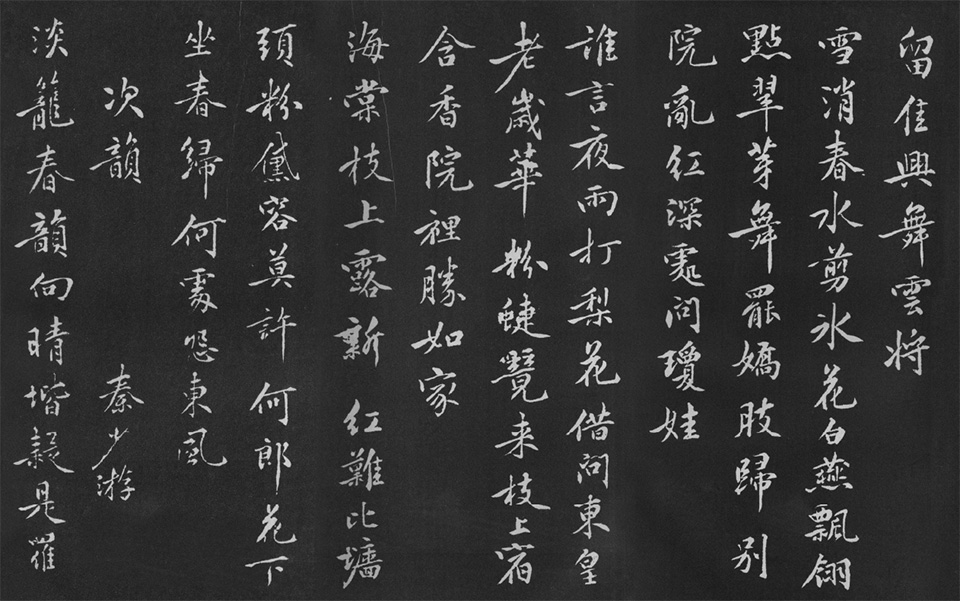 留佳興舞雲将
雪消春水剪氷花白燕飄翎
點翠芽舞罷嬌肢歸別
院亂紅深處問瓊娃
誰言夜雨打梨花借問東皇
老歲華 粉蜨覽来枝上宿
含香院裡勝如家
海棠枝上露新 紅難比墻
頭粉黛容莫許 何郎花下
坐春歸何處怨東風
次韻 秦少游
淡籠春韻向晴堦疑是羅